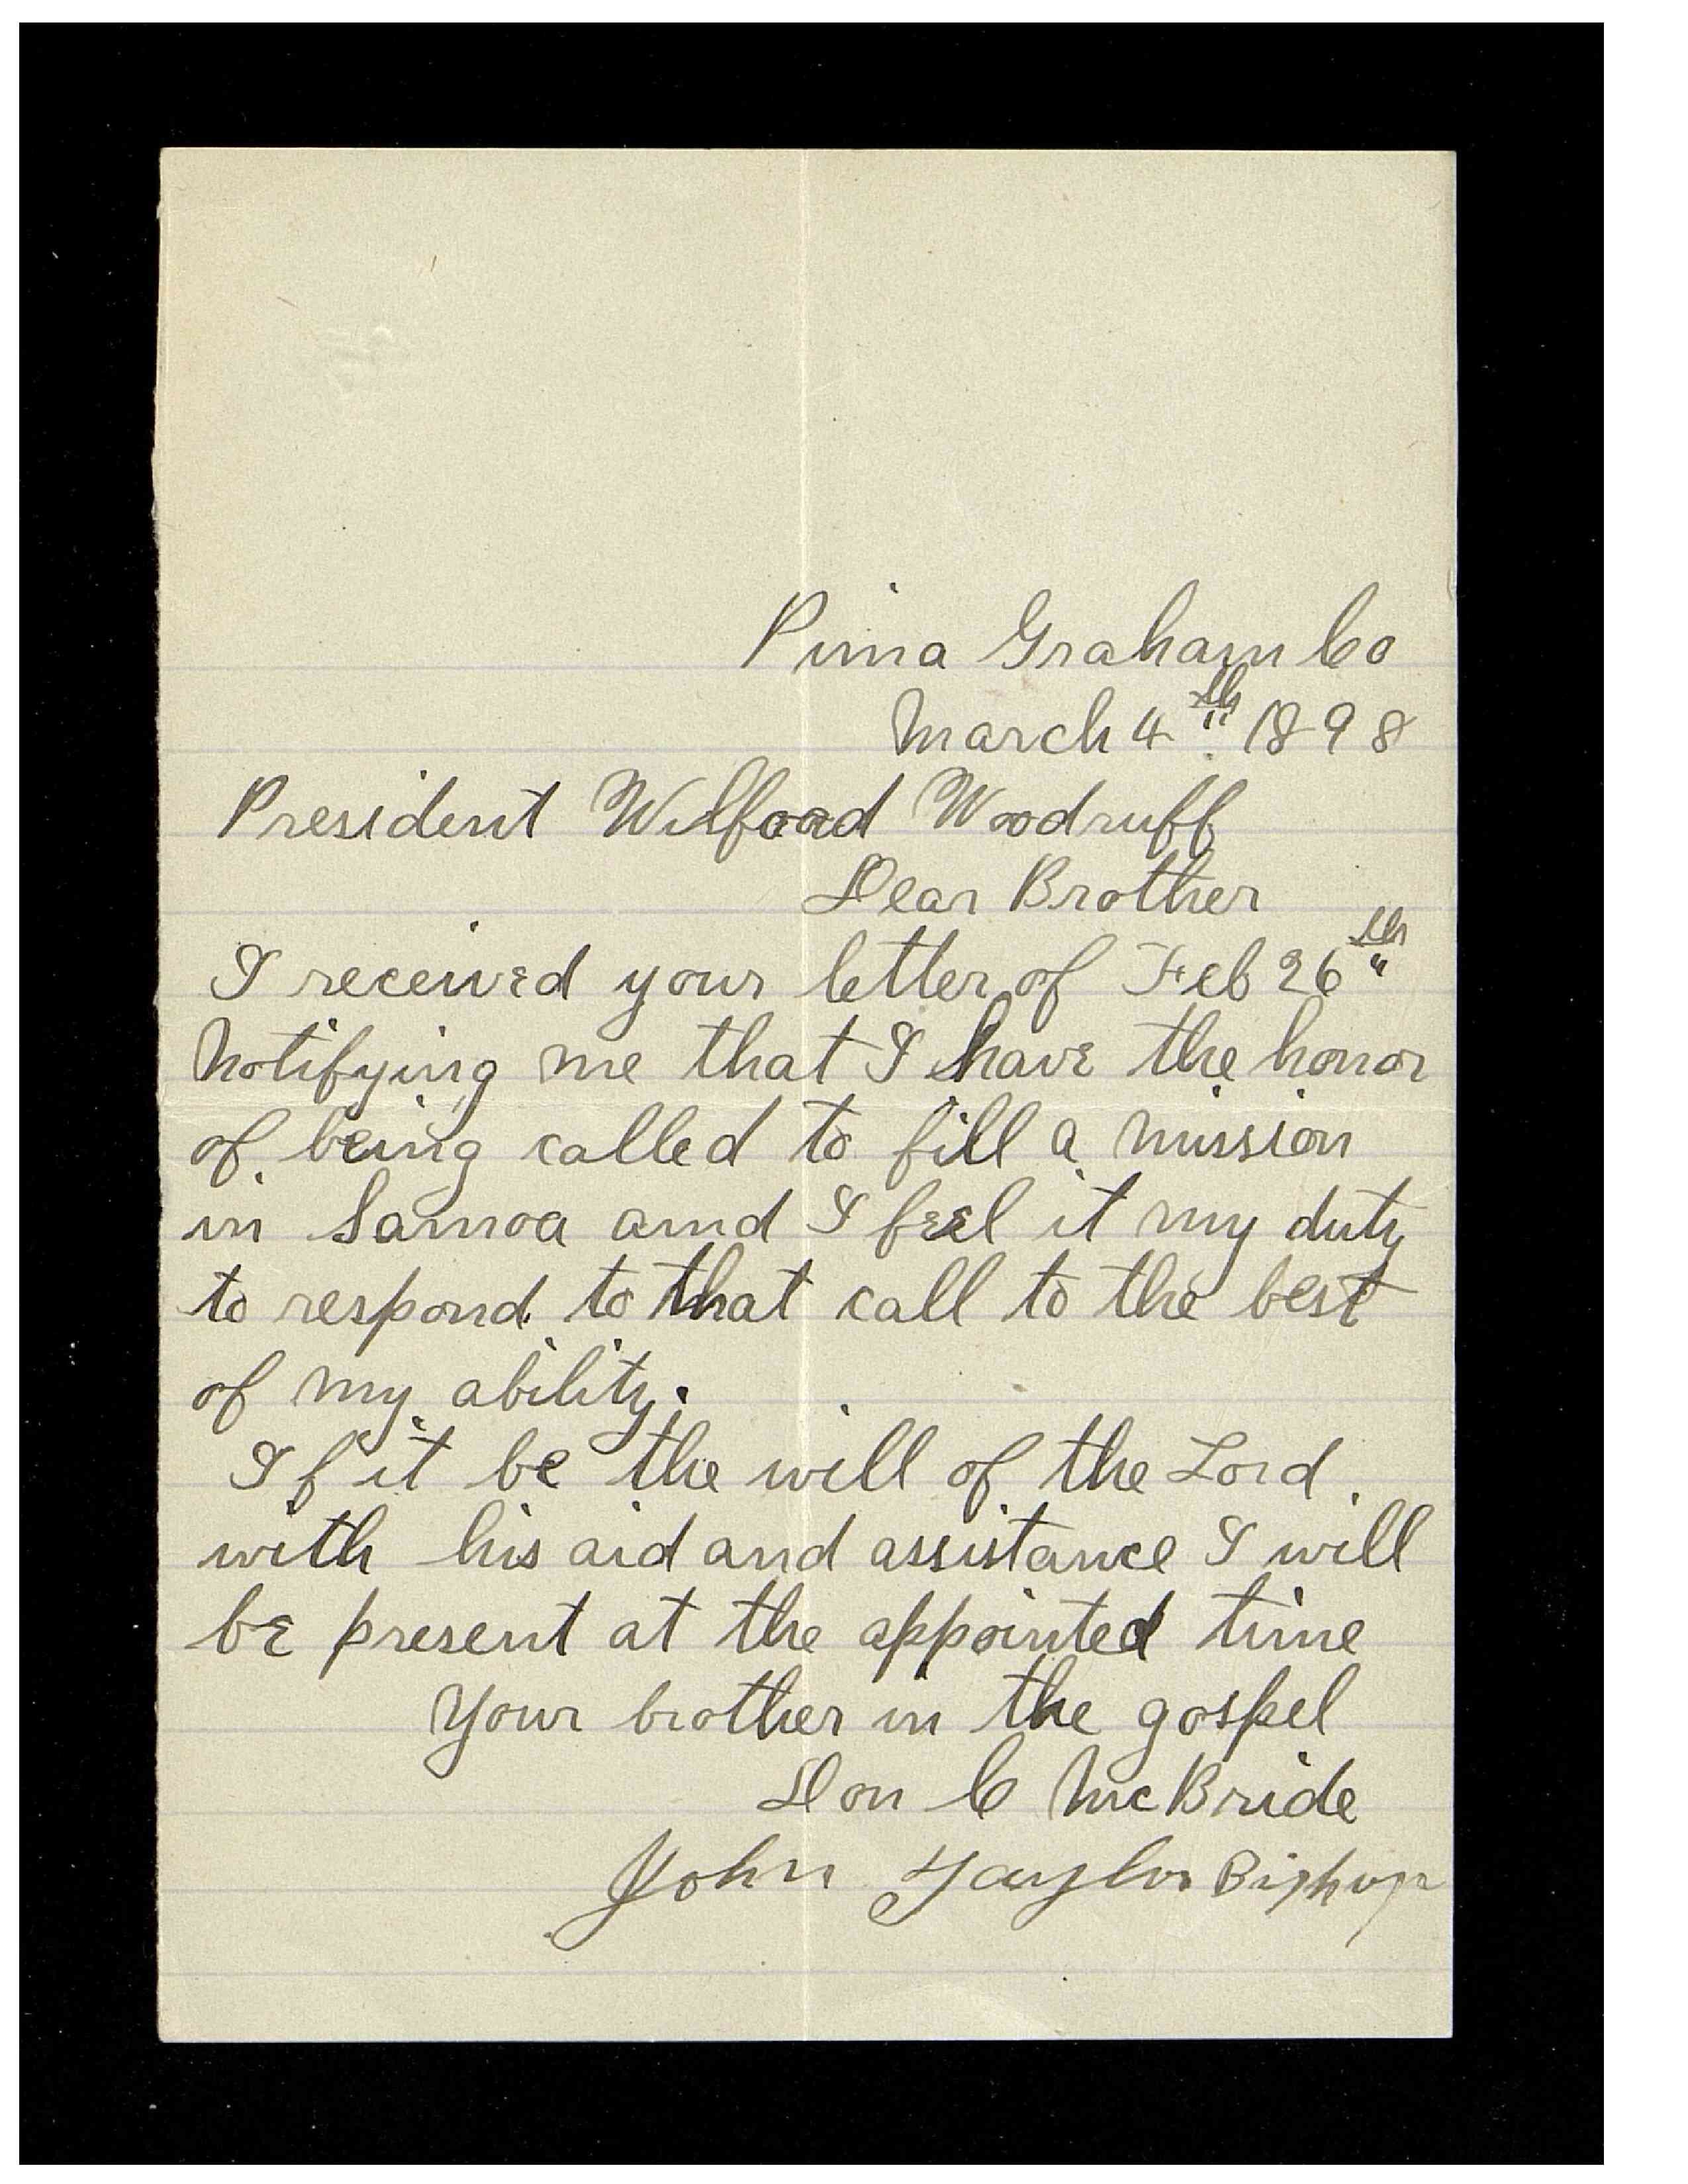 Pima Graham Co
March 4th 1898
President Wilford Woodruff
Dear Brother
I received your letter of Feb 26th
Notifying me that I have the honor
of being called to fill a mission
in Samoa amd I feel it my duty
to respond to that call to the best
of my ability.
If it be the will of the Lord.
with his aid and assistance I will
be present at the appointed time
Your brother in the gospel
Don C McBride
John Taylor Bishop